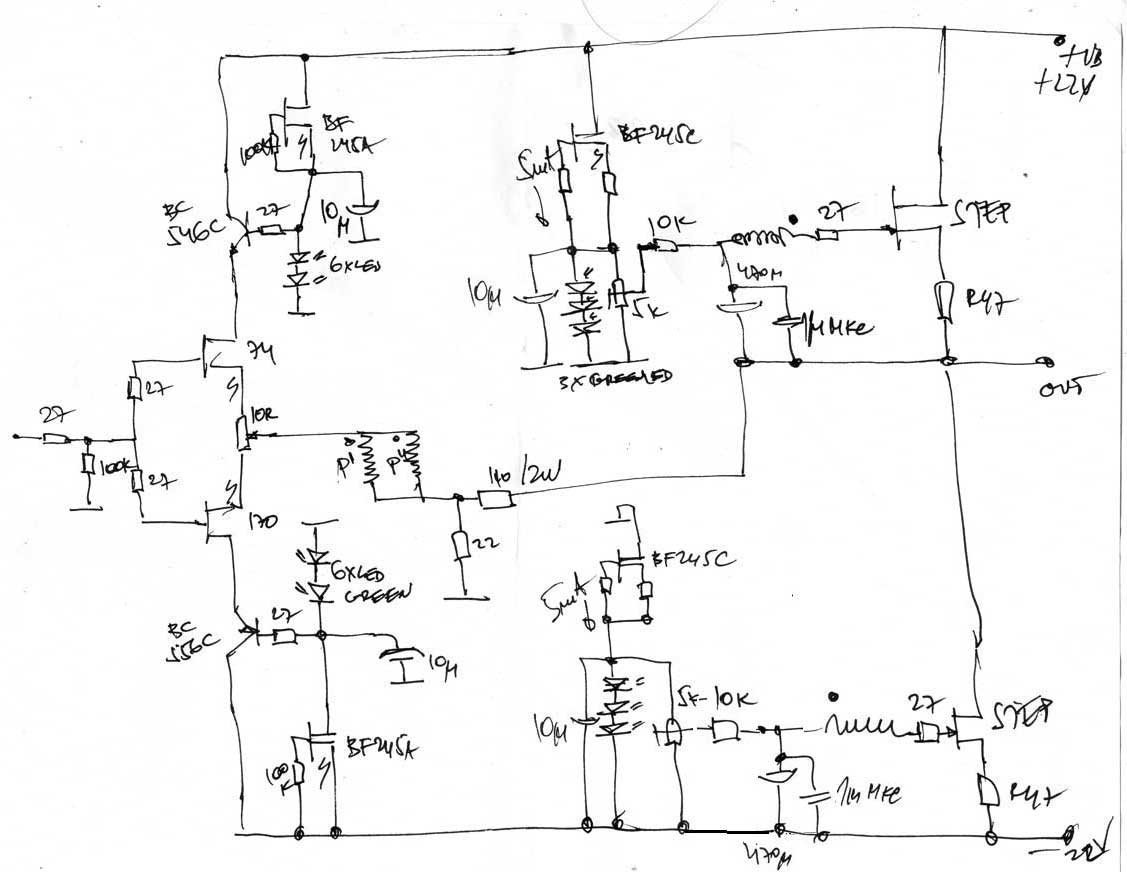 +VB
+22V
BF
245A
100K
BC
546C
27
10
µ
6XLED
BF245C
5mA
10K
27
10µ
5K
470µ
1µ MKC
R47
3XGREENLED
OUT
74
27
10R
27
100K
27
P1
P4
170
22
6XLED
GREEN
BF245C
5mA
BC
556C
27
10µ
5K-10K
27
10µ
BF245A
100
K
1µ MKC
R47
470µ
-22V